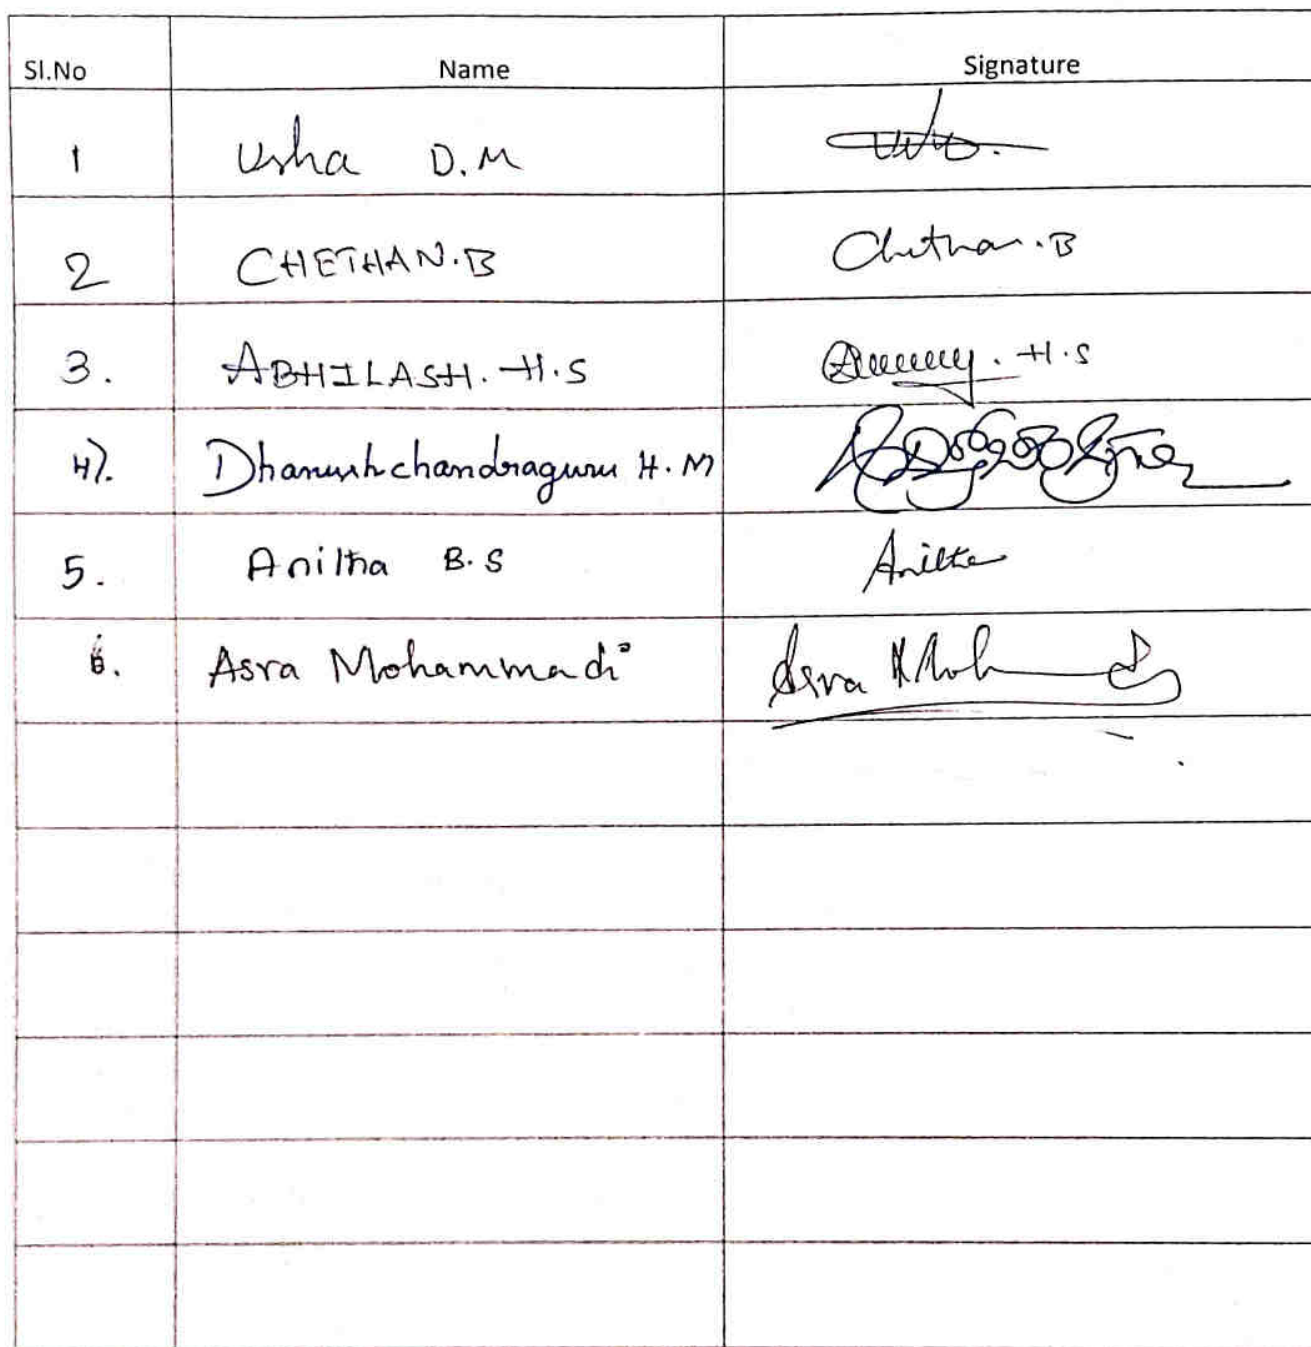 Sl.No Name Signature
1 Usha D.M
2 CHETHAN.B Chethan.B
3. ABHILASH.H.S H.S
4). Dhanushchandraguru H.M
5. Anitha B.S Anitha
6. Asra Mohammadi Asra